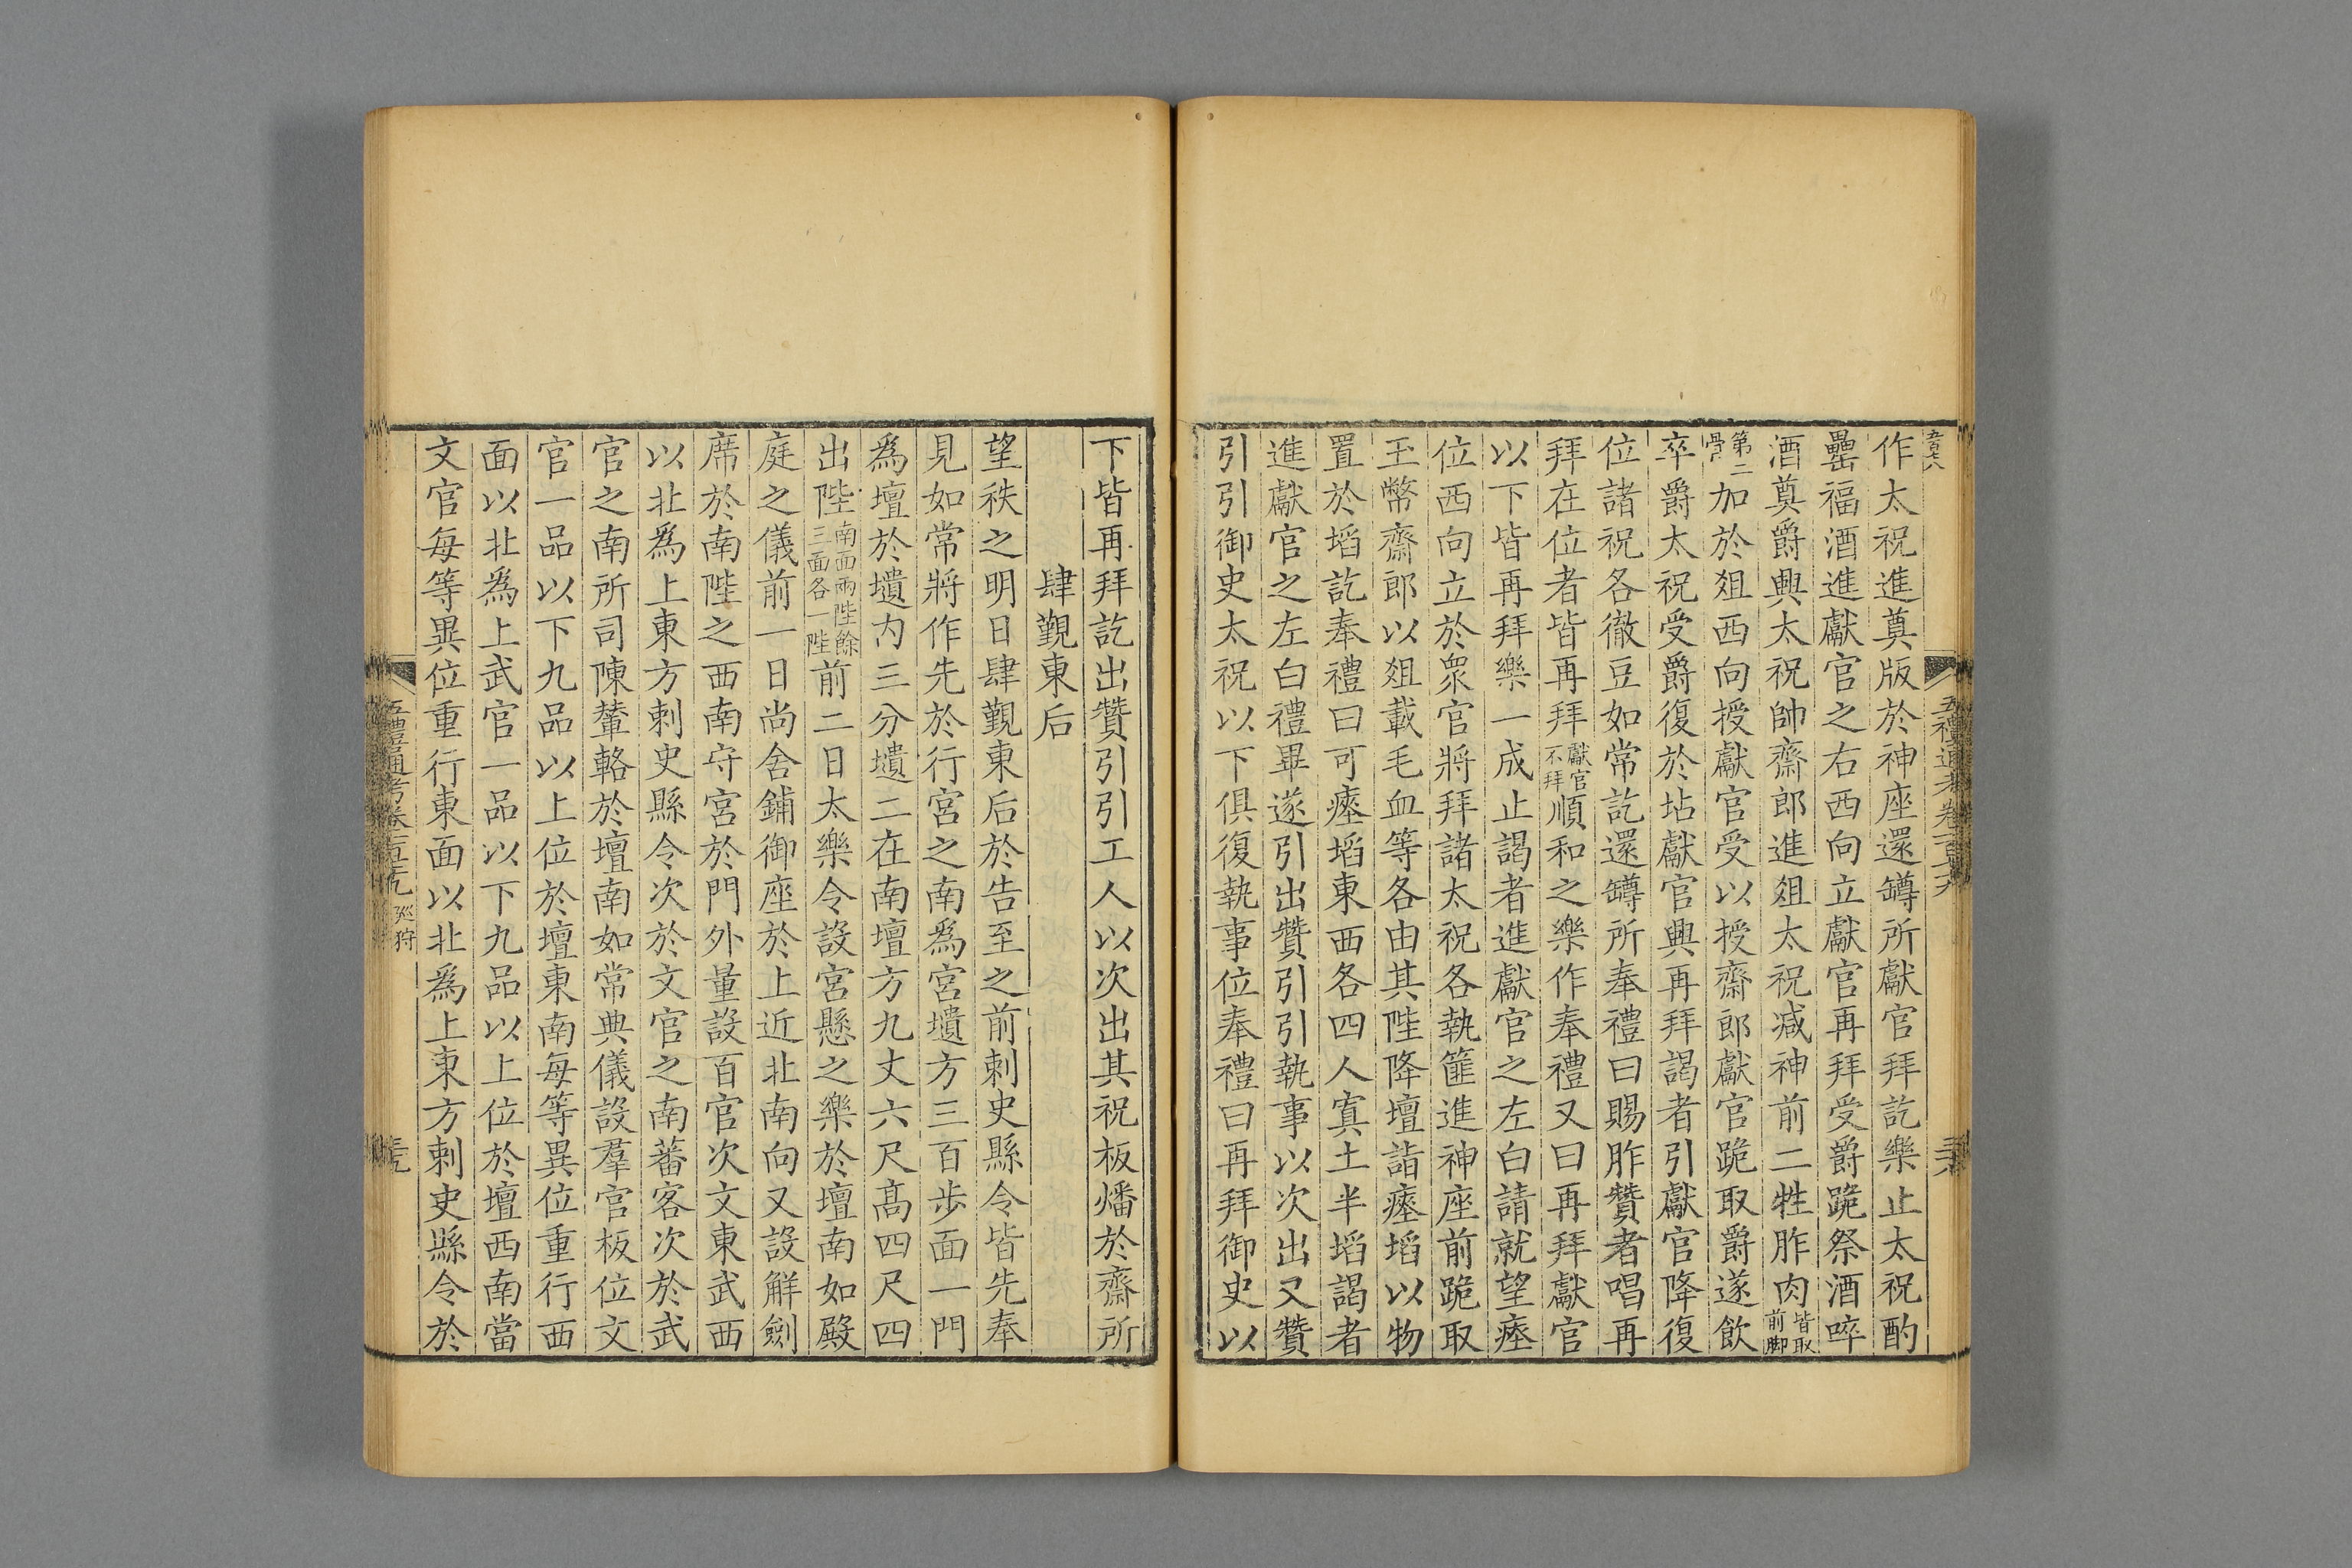 作太祝進奠版於神座還罇所獻官拜訖樂止太祝酌
罍福酒進獻官之右西向立獻官再拜受爵跪祭酒啐
酒奠爵興太祝帥齋郎進俎太祝減神前二牲胙肉皆取前脚
第二骨加於俎西向授獻官受以授齋郎獻官跪取爵遂飲
卒爵太祝受爵復於坫獻官興再拜謁者引獻官降復
位諸祝各徹豆如常訖還罇所奉禮曰賜胙贊者唱再
拜在位者皆再拜獻官不拜順和之樂作奉禮又曰再拜獻官
以下皆再拜樂一成止謁者進獻官之左白請就望瘞
位西向立於衆官將拜諸太祝各執篚進神座前跪取
玉幣齋郎以俎載毛血等各由其陛降壇詣瘞埳以物
置於埳訖奉禮曰可瘞埳東西各四人寘土半埳謁者
進獻官之左白禮畢遂引出贊引引執事以次出又贊
引引御史太祝以下俱復執事位奉禮曰再拜御史以
下皆再拜訖出贊引引工人以次出其祝板燔於齋所
肆覲東后
望秩之明日肆覲東后於告至之前刺史縣令皆先奉
見如常將作先於行宮之南為宮壝方三百步面一門
為壇於壝內三分壝二在南壇方九丈六尺高四尺四
出陛南面兩陛餘三面各一陛前二日太樂令設宮懸之樂於壇南如殿
庭之儀前一日尚舍鋪御座於上近北南向又設解劍
席於南陛之西南守宮於門外量設百官次文東武西
以北爲上東方刺史縣令次於文官之南蕃客次於武
官之南所司陳輦輅於壇南如常典儀設羣官板位文
官一品以下九品以上位於壇東南每等異位重行西
面以北爲上武官一品以下九品以上位於壇西南當
文官每等異位重行東面以北爲上東方刺史縣令於